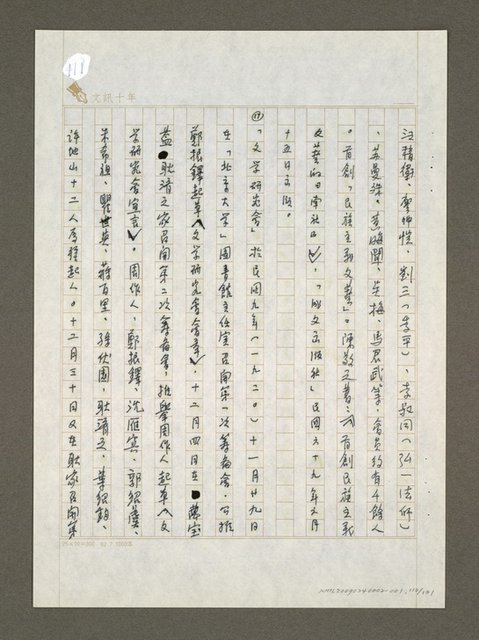 111
文訊十年
汪精衛、劉三(季平)、李叔同(弘一法師)
、蘇曼殊、黃晦聞、朱梅、馬君武等,會員約有千餘人
。首創「民族主義文藝」。陳敬之著:首創民族主義
文藝的「南社」,「成文出版社」民國六十九年元月
十五日出版。
「文学研究會」於民國九年(一九二〇)十一月廿九日
在「北京大学」圖書館主任室召開第一次籌備會,公推
鄭振鐸起草〈文学研究會會章〉,十二月四日在萬寶
蓋耿濟之家召開第二次籌備會,推舉周作人起草〈文
学研究會宣言〉。周作人、鄭振鐸、沈雁冰、郭紹虞、
朱希祖、瞿世英、蔣百里、孫伏園、耿濟之、葉紹鈞、
許地山十二人為發起人。十二月三十日又在耿家召開第
25×12=300